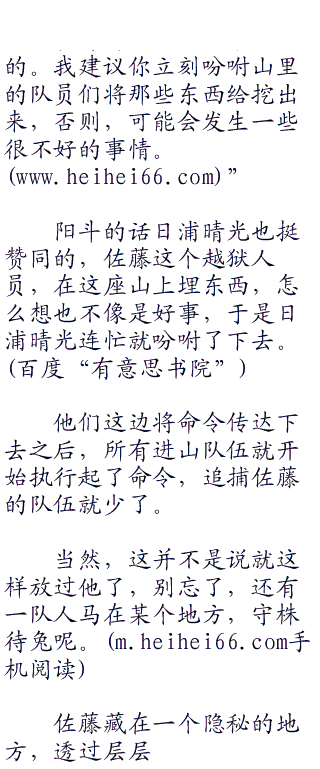 的。我建议你立刻吩咐山里
的队员们将那些东西给挖出
来，否则，可能会发生一些
很不好的事情。
(www.heihei66.com)”
阳斗的话日浦晴光也挺
赞同的，佐藤这个越狱人
员，在这座山上埋东西，怎
么想也不像是好事，于是日
浦晴光连忙就吩咐了下去。
(百度“有意思书院”)
他们这边将命令传达下
去之后，所有进山队伍就开
始执行起了命令，追捕佐藤
的队伍就少了。
当然，这并不是说就这
样放过他了，别忘了，还有
一队人马在某个地方，守株
待兔呢。(m.heihei66.com手
机阅读)
佐藤藏在一个隐秘的地
方，透过层层